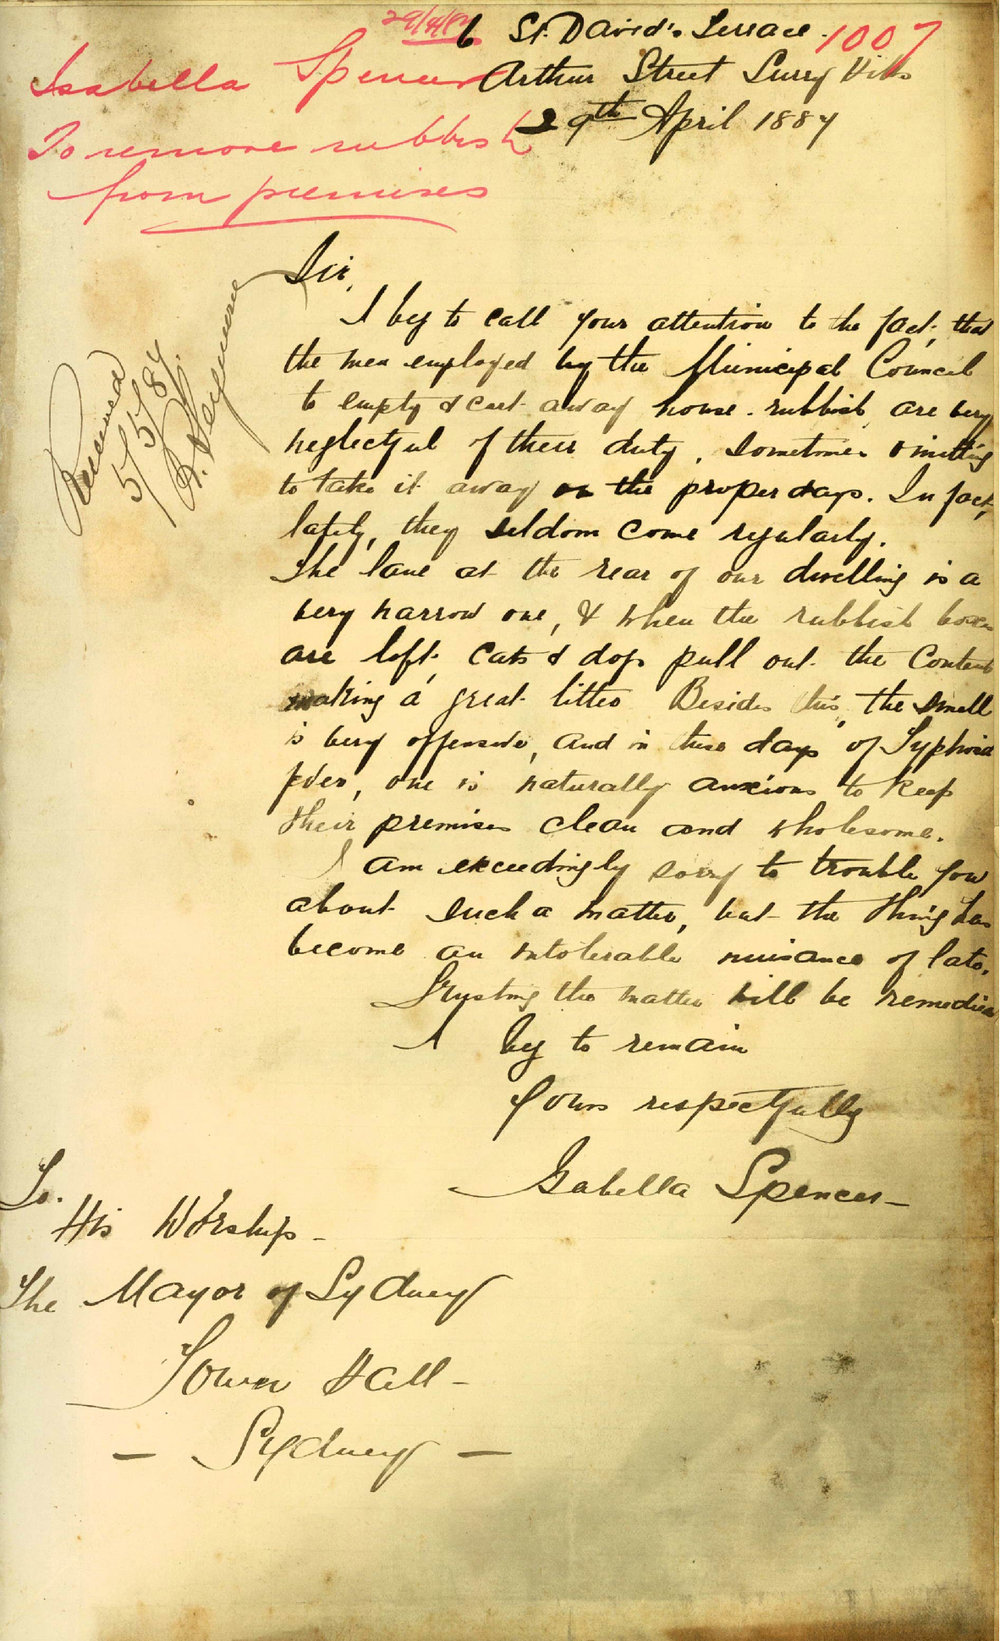 29/4/84
6 St. David's Terrace
1007
Isabella Spencer
Arthur Street Surry Hills
29th April 1884
To remove rubbish
from premises
Sir,
I beg to call your attention to the fact, that
the men employed by the Municipal Council
to empty & cart away house-rubbish, are very
neglectful of their duty, sometimes omitting
to take it away on the proper days. In fact,
lately, they seldom come regularly.
The lane at the rear of our dwelling is a
very narrow one, & when the rubbish boxes
are left, cats & dogs pull out the contents
making a great litter Besides this, the smell
is very offensive, and in these days of Typhoid
fever, one is naturally anxious to keep
their premises clean and wholesome.
I am exceedingly sorry to trouble you
about such a matter, but the thing has
become an intolerable nuisance of late.
Trusting the matter will be remedied
I beg to remain
Yours respectfully
Isabella Spencer
To.
His Worship
The Mayor of Sydney
Town Hall
Sydney
Removed
5/5/84
R. Seymour